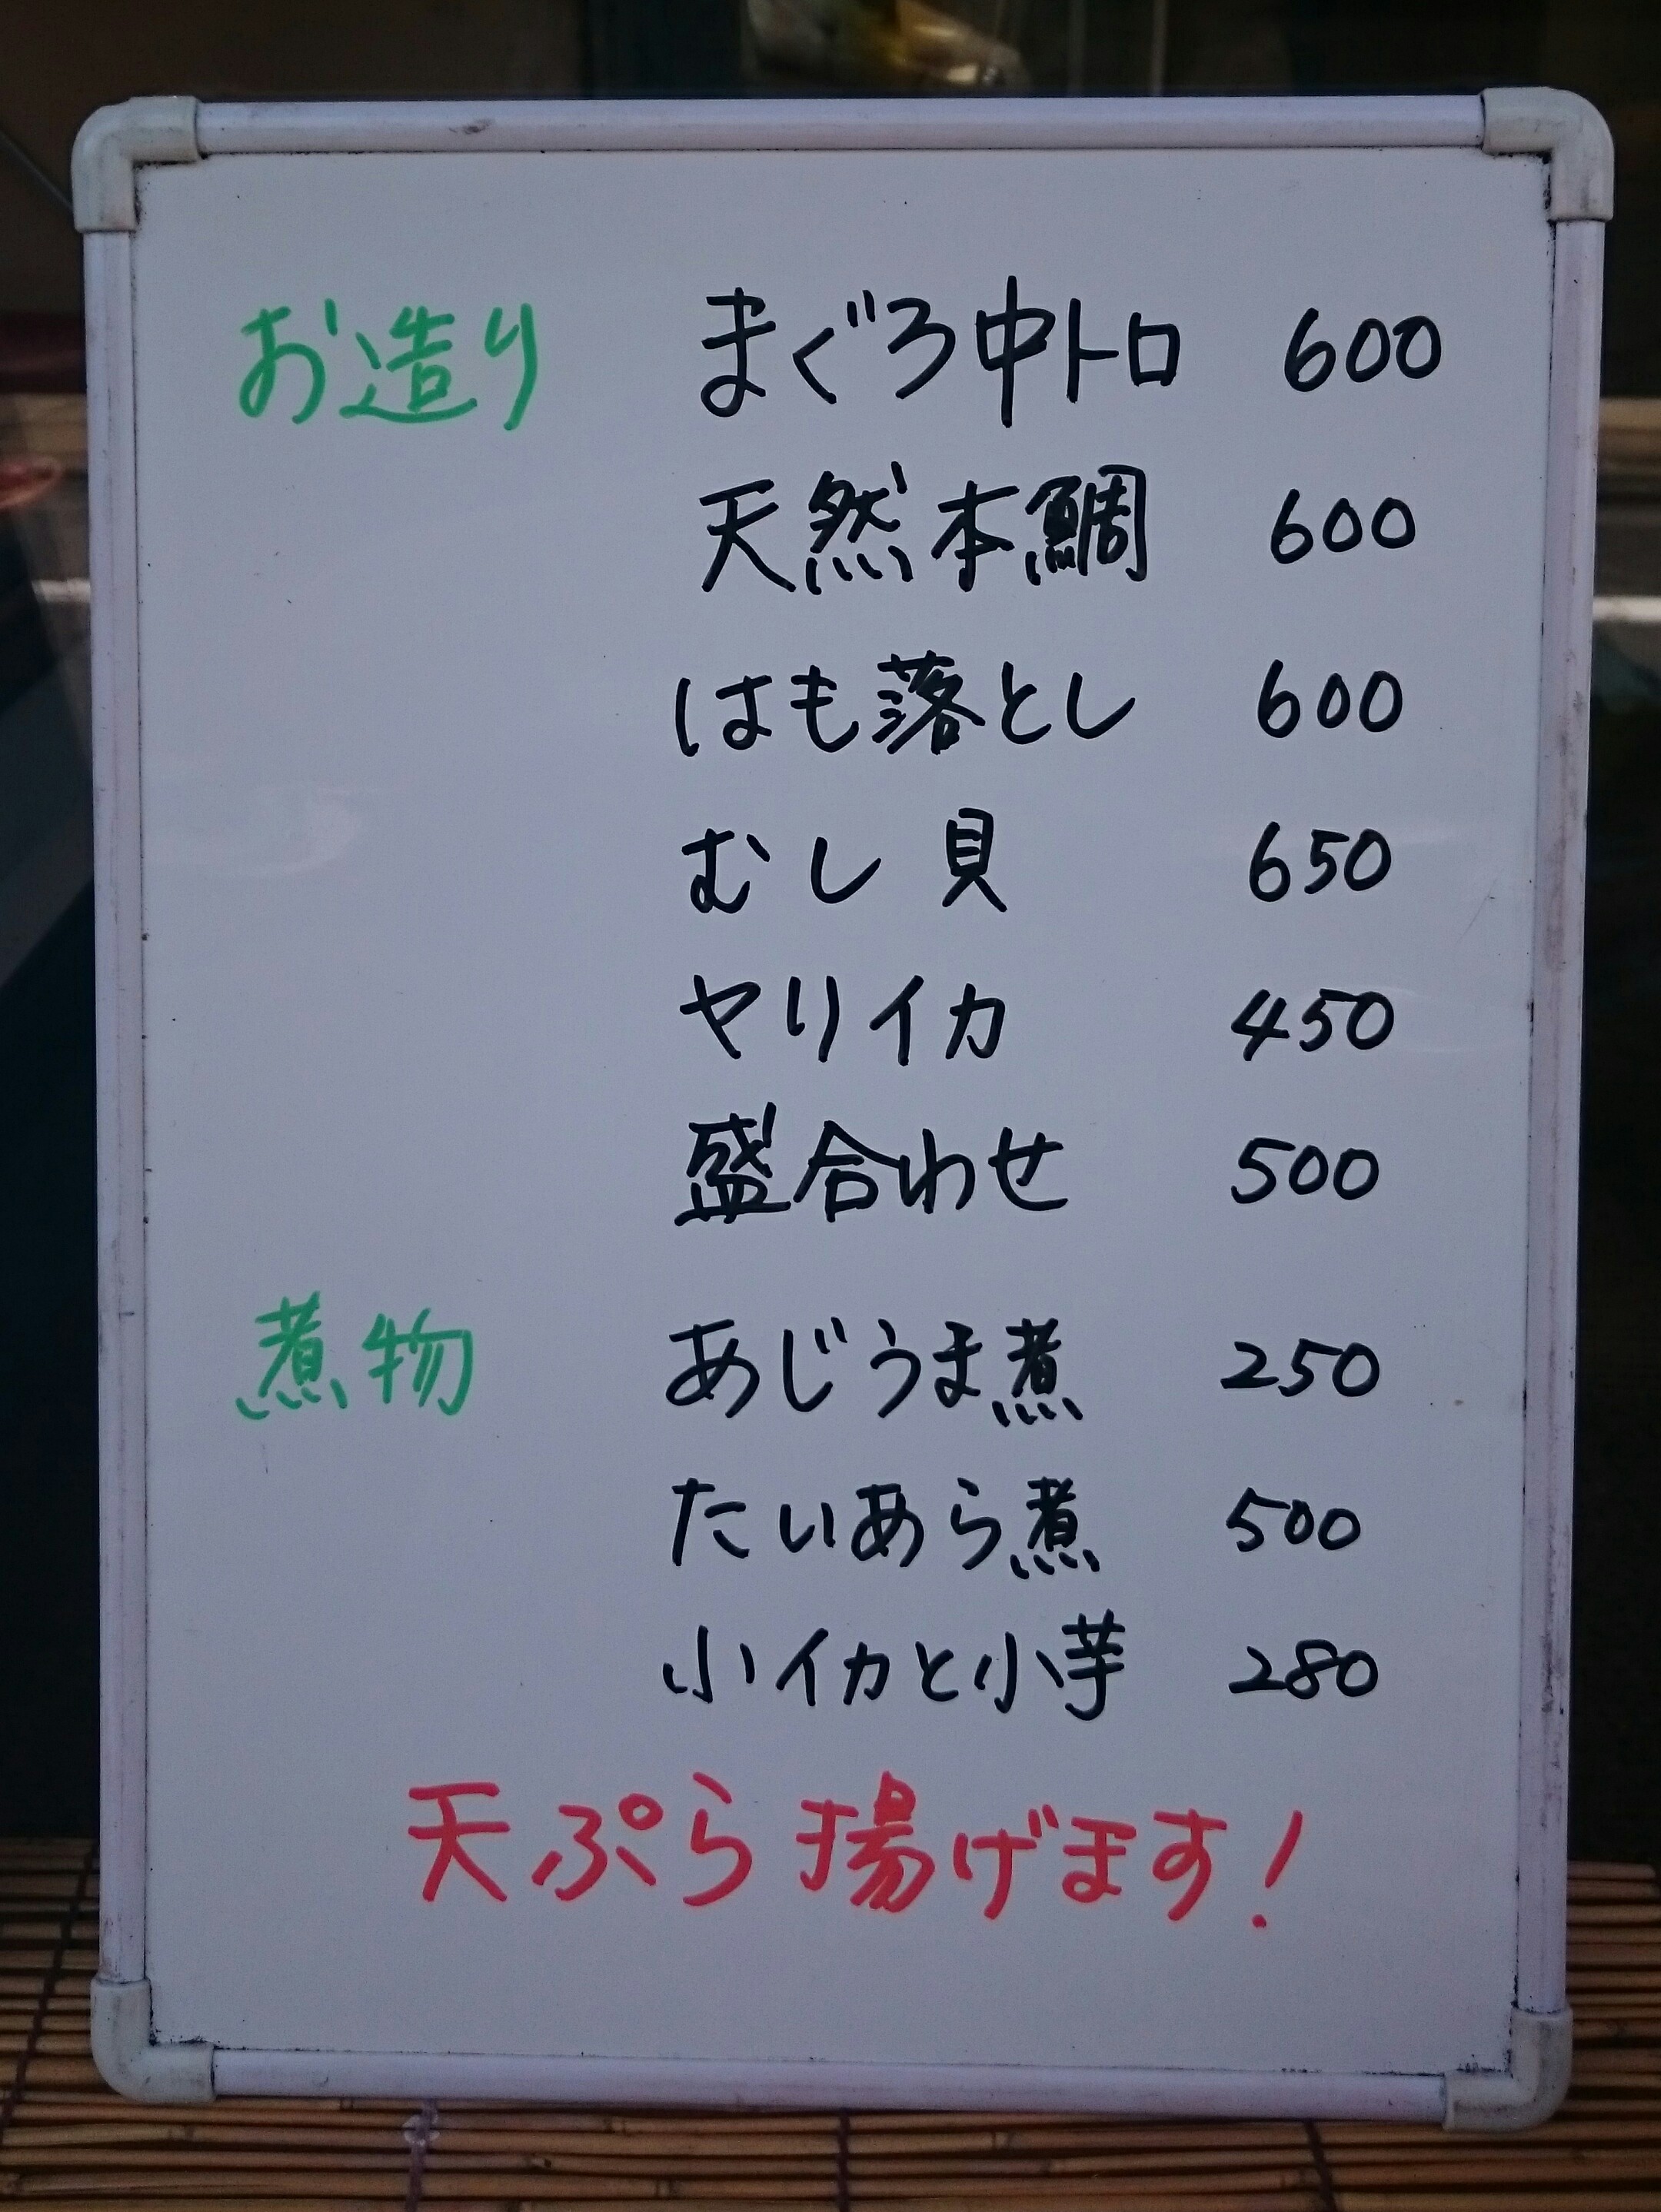 お造り まぐろ中トロ 600
天然本鯛 600
はも落とし 600
むし貝 650
ヤリイカ 450
盛合わせ 500
煮物 あじうま煮 250
たいあら煮 500
小イカと小芋 280
天ぷら揚げます!